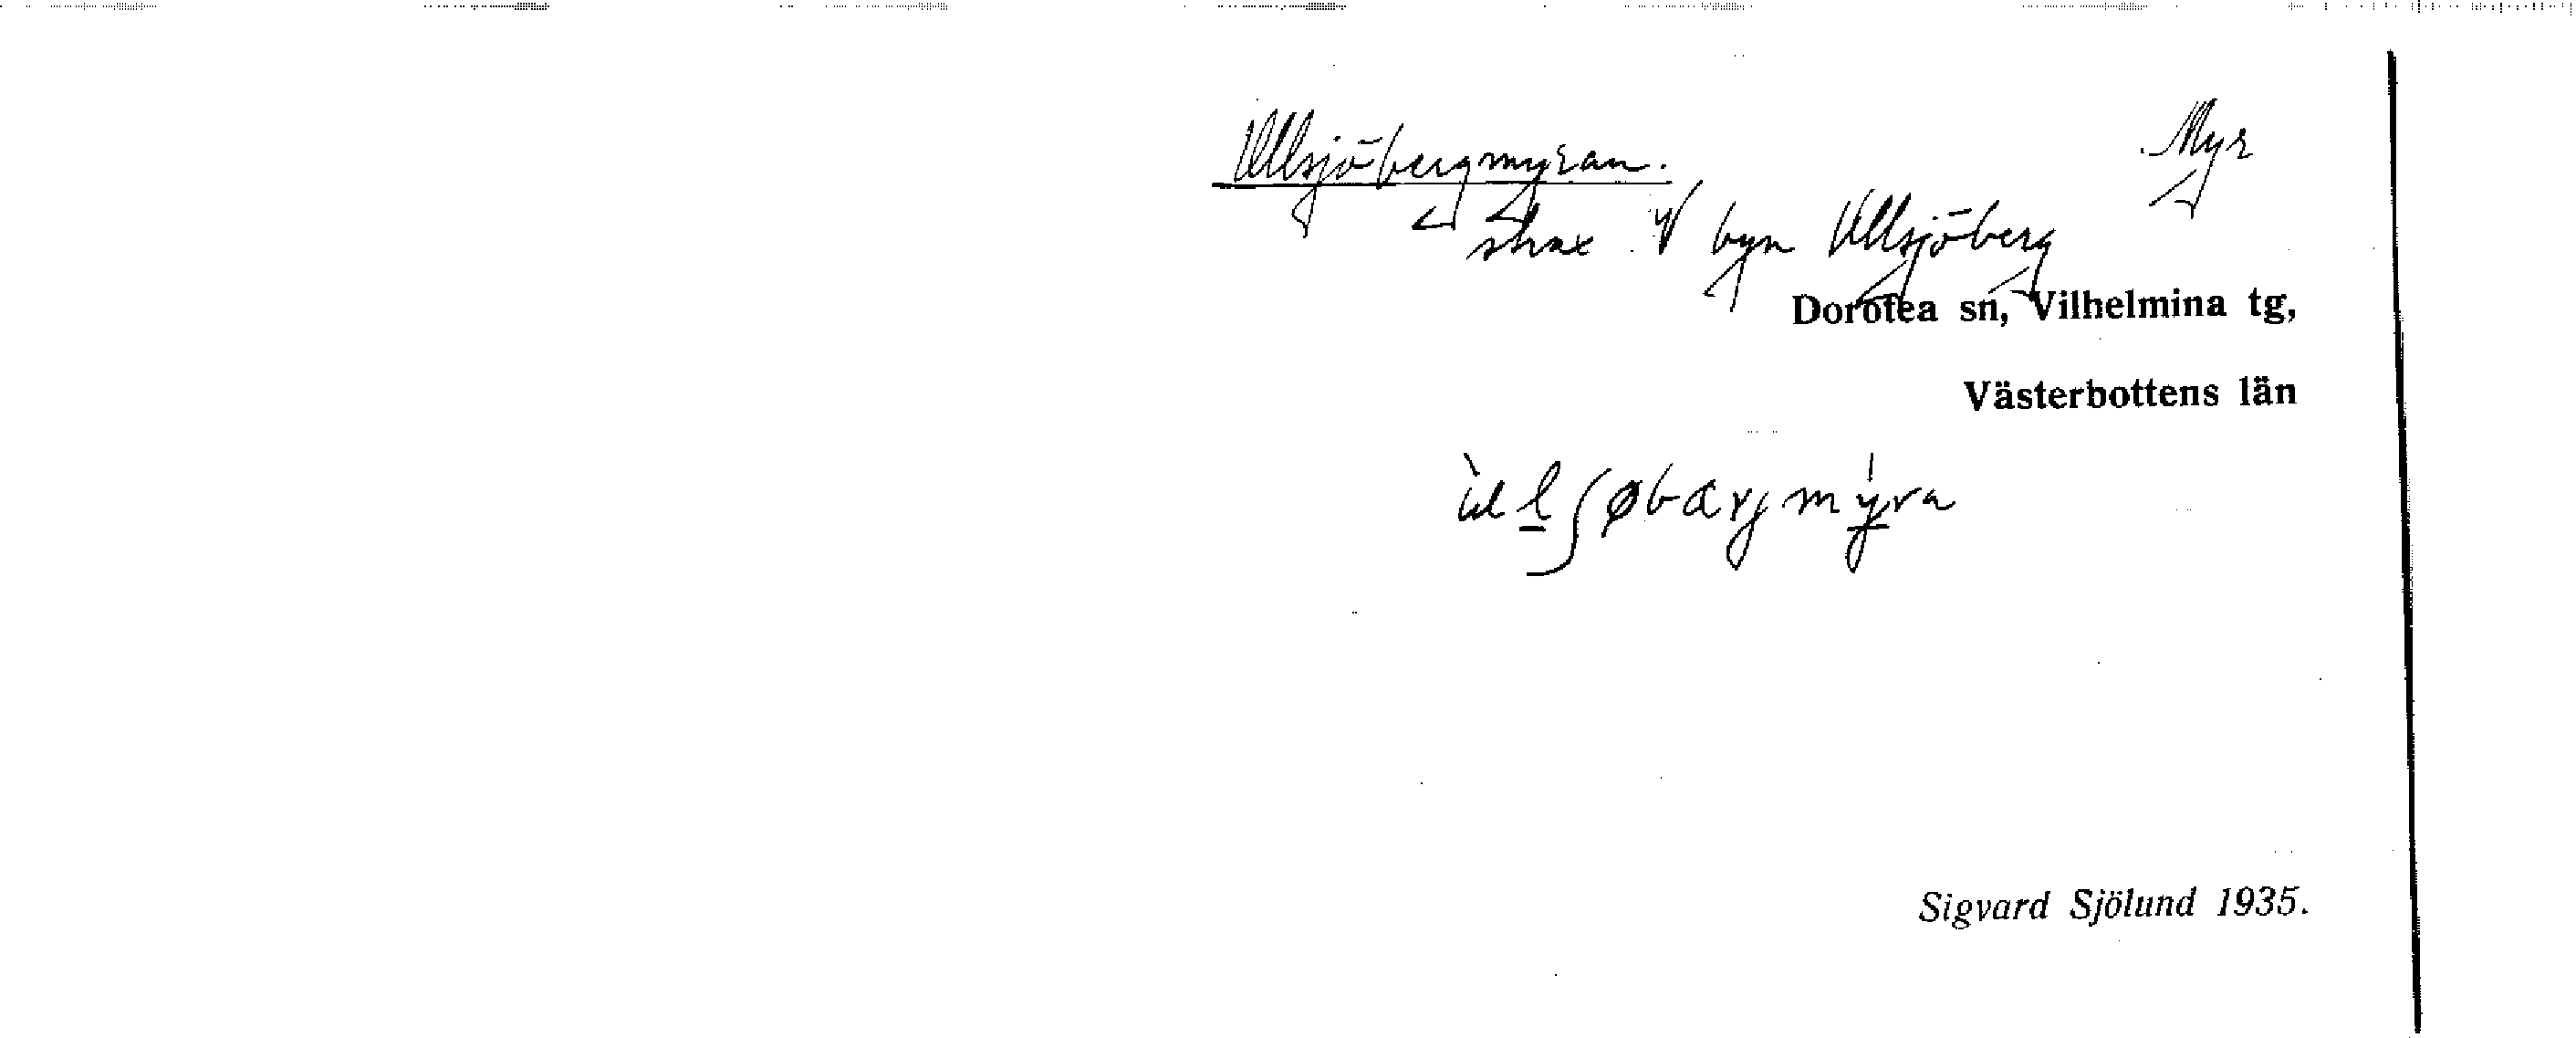 Ullsjöbergmyran. Myr
strax V byn Ullsjöberg
Dorotea sn, Vilhelmina tg,
Västerbottens län
ùlḻʃøbarjmýra
Sigvard Sjölund 1935.